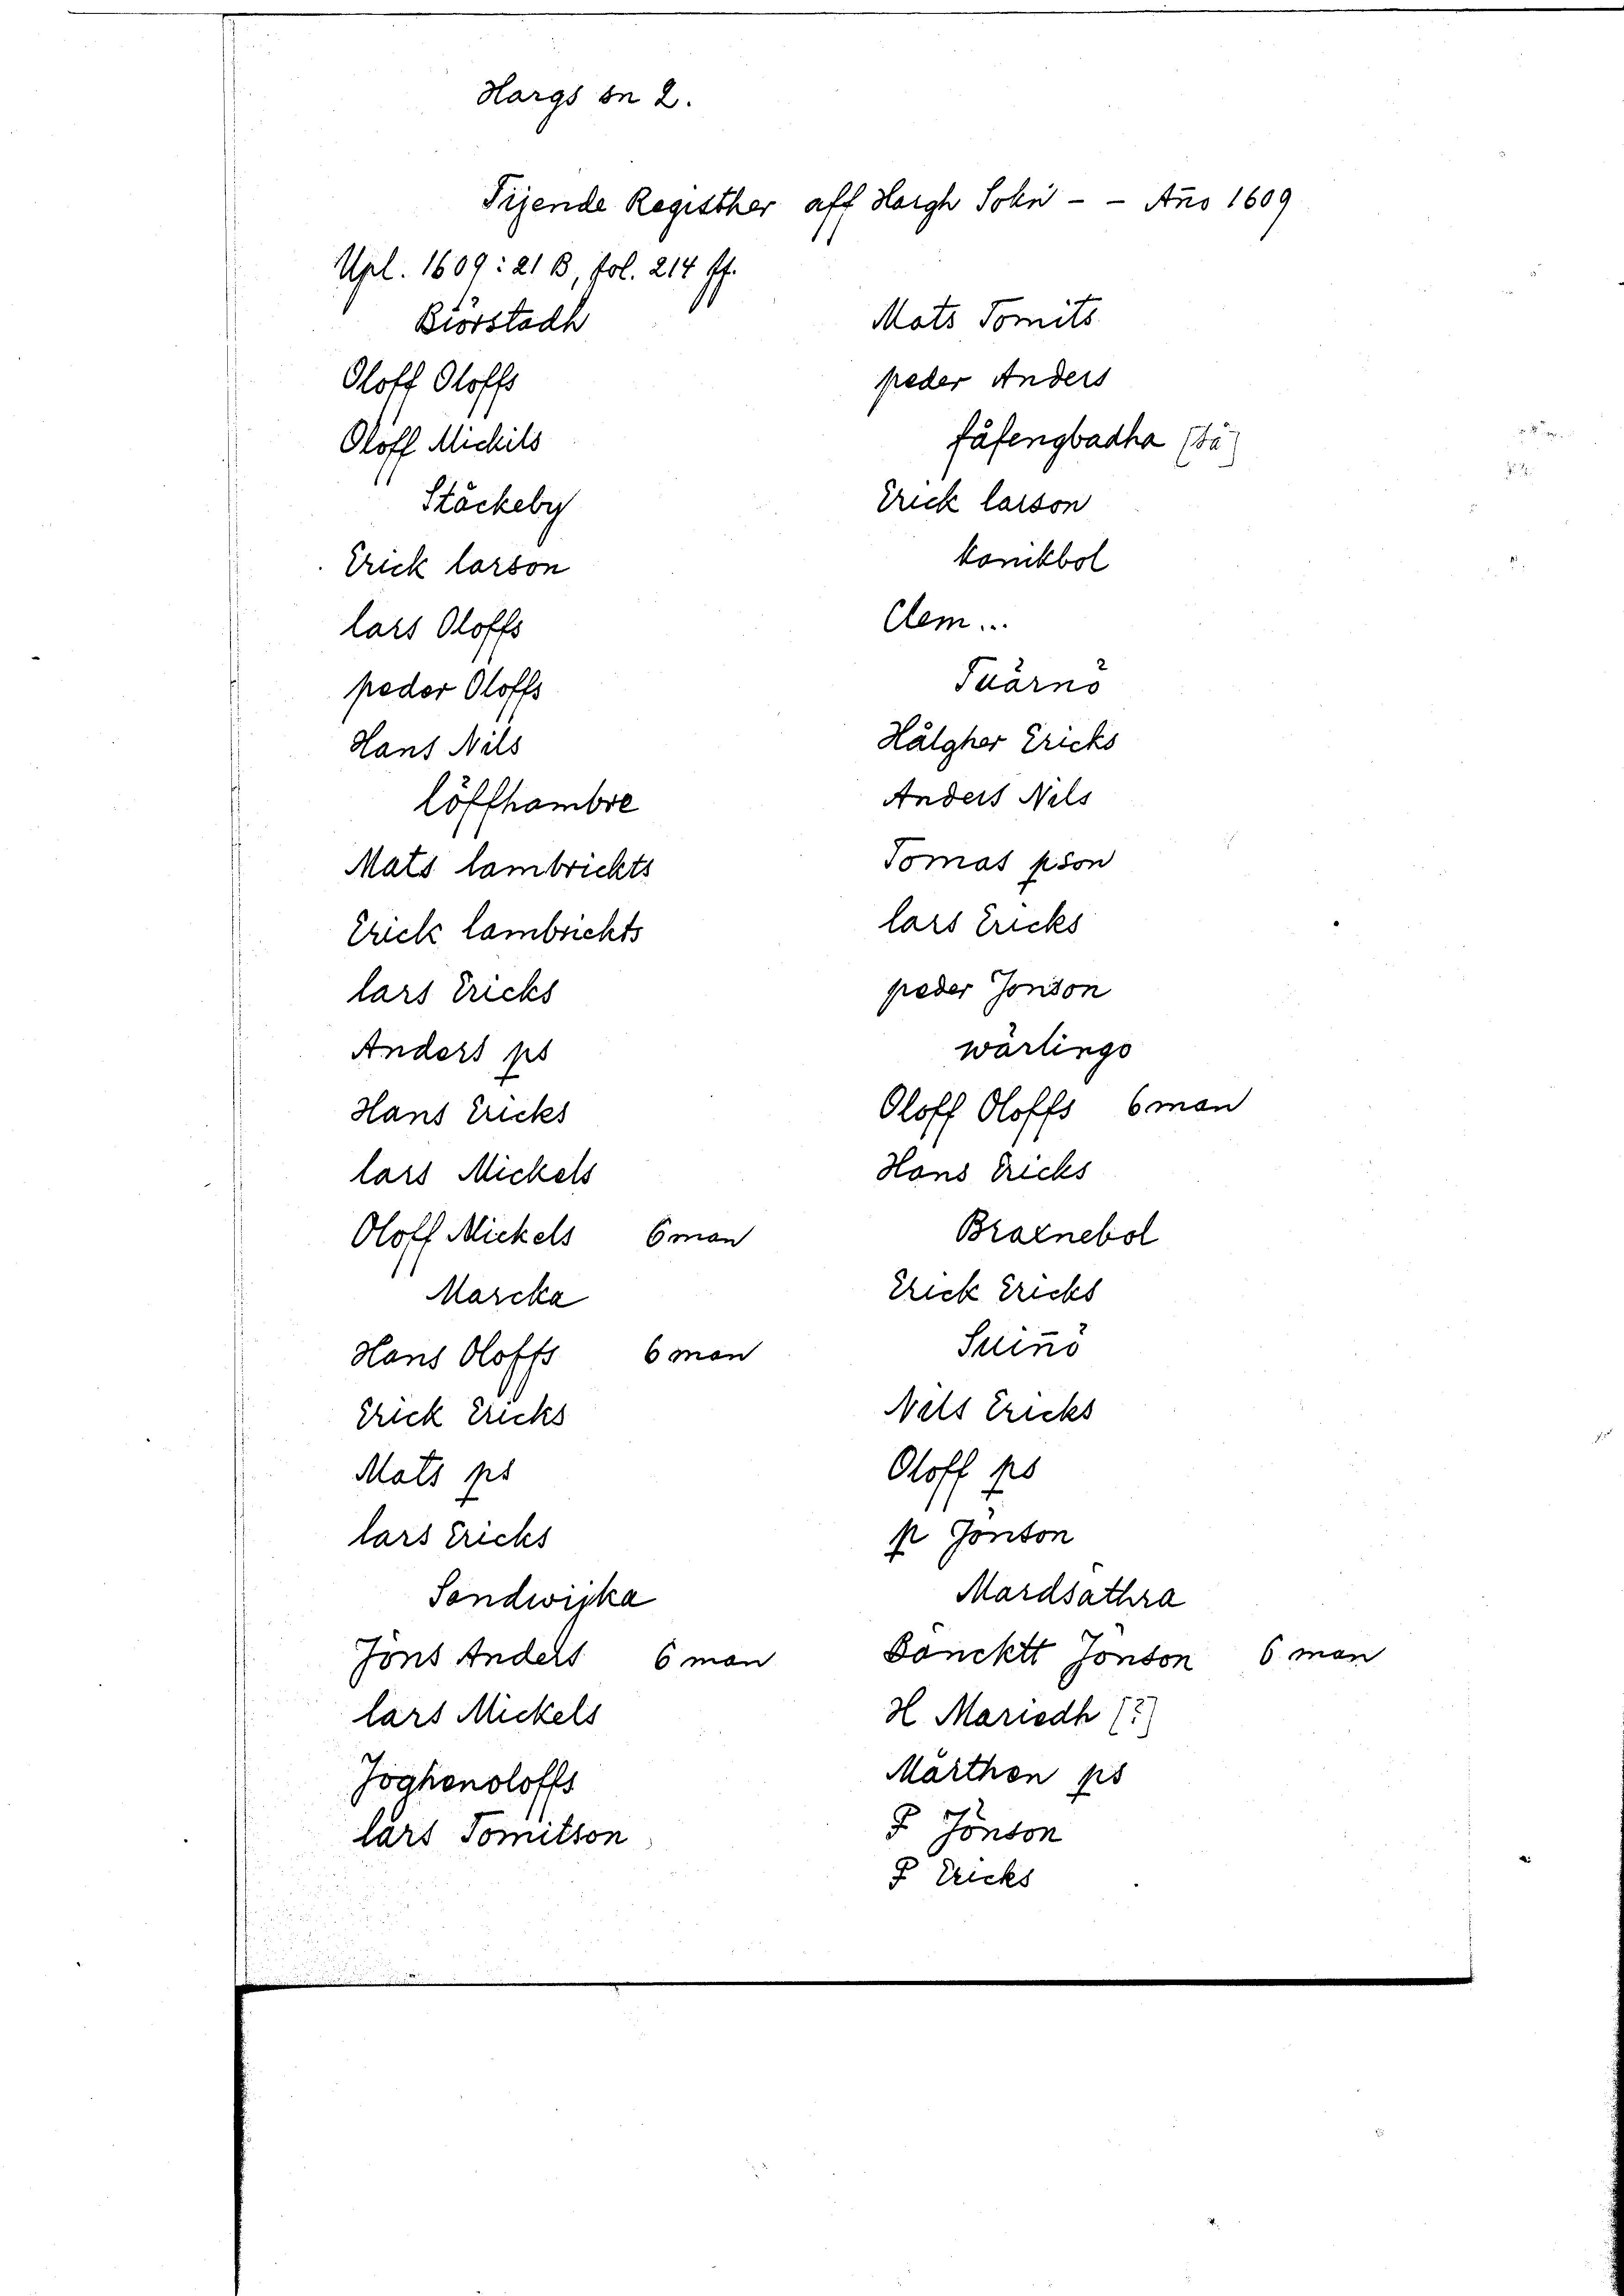 Hargs sn 2.
Tijende Registher aff Hargh Sokn̄ - - An̄o 1609
Upl. 1609: 21 B, fol. 214 ff.
Biörstadh
Oloff Oloffs
Oloff Michils
Stäckeby
Erick larson
lars Oloffs
peder Oloffs
Hans Nils
löffhambre
Mats lambrichts
Erick lambrichts
lars Ericks
Anders ps
Hans Ericks
lars Mickels
Oloff Mickels 6man
Marcka
Hans Oloffs 6 man
Erick Ericks
Mats ps
lars Ericks
Sandwijka
Jöns Anders 6 man
lars Mickels
Joghenoloffs
lars Tomitson
Mats Tomits
peder Anders
fäfengbadha (så)
Erick larson
konikbol
Clem...
Tuärnö
Hålgher Ericks
Anders Nils
Tomas pson
lars Ericks
peder Jonson
wärlingo
Oloff Oloffs 6man
Hans Ericks
Braxnebol
Erick Ericks
Suin̄ö
Nils Ericks
Oloff ps
p Jönson
Mardsäthra
Bäncktt Jönson 6 man
H Mariedh (?)
Mårthen ps
P Jönson
P Ericks